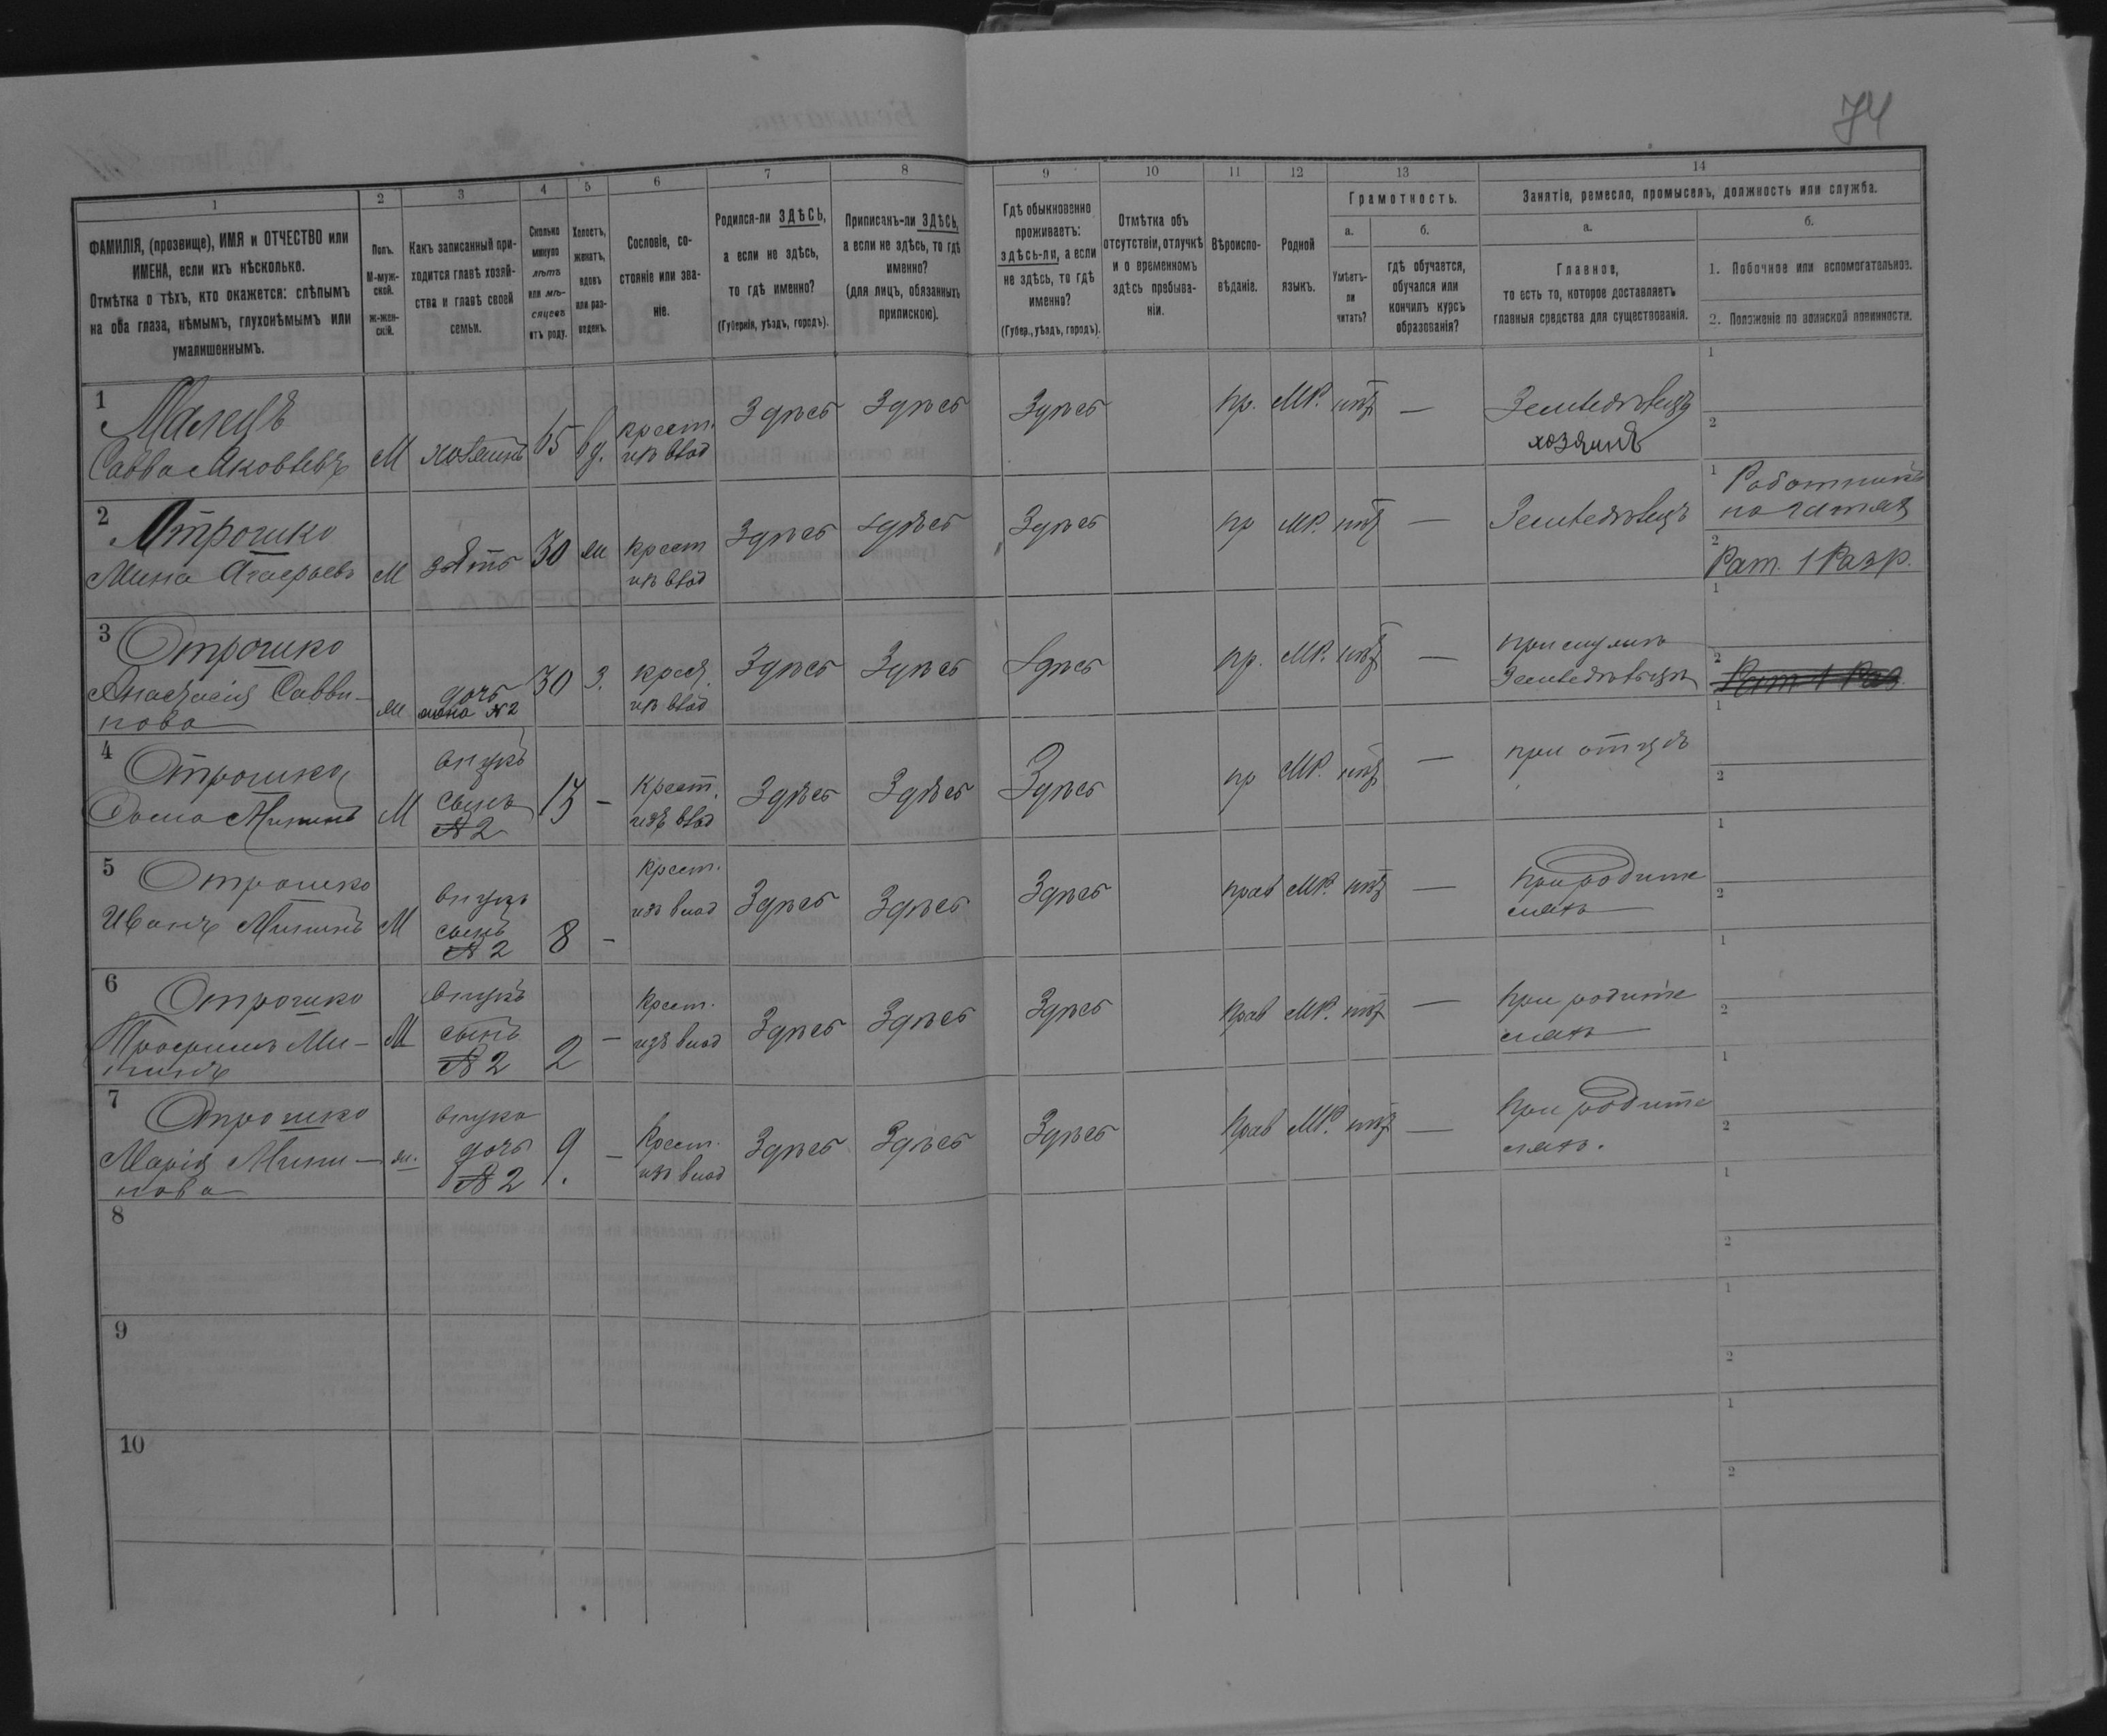 74
1
2
3
4
5
6
7
8
9
10
11
12
13
14
ФАМИЛІЯ, (прозвище), ИМЯ и ОТЧЕСТВО или
ИМЕНА, если ихъ нѣсколько.
Отмѣтка о тѣхъ, кто окажется: слѣпымъ
на оба глаза, нѣмымъ, глухонѣмымъ или
умалишеннымъ.
Полъ.
М-муж-
ской.
ж-жен-
скій.
Какъ записанный при-
ходится главѣ хозяй-
ства и главѣ своей
семьи.
Сколько
минуло
лѣтъ
или мѣ-
сяцевъ
отъ роду.
Холостъ,
женатъ,
вдовъ
или раз-
веденъ.
Сословіе, со-
стояніе или зва-
ніе.
Родился-ли ЗДѢСЬ,
а если не здѣсь,
то гдѣ именно?
(Губернія, уѣздъ, городъ).
Приписанъ-ли ЗДѢСЬ,
а если не здѣсь, то гдѣ
именно?
(для лицъ, обязанныхъ
припискою).
Гдѣ обыкновенно
проживаетъ:
здѣсь-ли, а если
не здѣсь, то гдѣ
именно?
(Губер., уѣздъ, городъ).
Отмѣтка объ
отсутствіи, отлучкѣ
и о временномъ
здѣсь пребыва-
ніи.
Вѣроиспо-
вѣданіе.
Родной
языкъ.
Грамотность.
а.
Умѣетъ-
ли
читать?
б.
гдѣ обучается,
обучался или
кончилъ курсъ
образованія?
Занятіе, ремесло, промыселъ, должность или служба.
а.
Главное,
то есть то, которое доставляетъ
главныя средства для существованія.
б.
1. Побочное или вспомогательное.
2. Положеніе по воинской повинности.
1
Малецъ
Савва Яковлевъ
М
хозяинъ
65
вд.
крест.
изъ влад
Здѣсь
Здѣсь
Здѣсь
пр.
МР.
нѣтъ
—
Земледѣлецъ
хозяинъ
1
2
2
Отрошко
Мина
М
зять
30
ж
крест
изъ влад
Здѣсь
Здѣсь
Здѣсь
пр
МР.
нѣтъ
—
Земледѣлецъ
1 Работникъ
2
Рат. 1 Разр.
3
Отрошко
Анастасія Савви-
нова
ж
дочь
жена №2
30
З.
крест.
изъ влад
Здѣсь
Здѣсь
Здѣсь
пр.
МР.
нѣтъ
—
при мужѣ
Земледѣльцѣ
1
2
Рат 1 Раз.
4
Отрошко
Фома Мининъ
М
внукъ
сынъ
№ 2
13
—
Крест.
изъ влад
Здѣсь
Здѣсь
Здѣсь
пр
МР.
нѣтъ
—
при отцѣ
1
2
5
Отрошко
Иванъ Мининъ
М
внукъ
сынъ
№ 2
8
—
Крест.
изъ влад
Здѣсь
Здѣсь
Здѣсь
прав
МР.
нѣтъ
—
при родите
ляхъ
1
2
6
Отрошко
Трофимъ Ми-
нинъ
М
внукъ
сынъ
№ 2
2
—
Крест.
изъ влад
Здѣсь
Здѣсь
Здѣсь
Прав
МР.
нѣтъ
—
при родите
ляхъ
1
2
7
Отрошко
Марія Мини-
нова
ж.
внука
дочь
№ 2
9.
—
Крест.
изъ влад
Здѣсь
Здѣсь
Здѣсь
Прав
МР.
нѣтъ
—
При родите
ляхъ.
1
2
8
1
2
9
1
2
10
1
2